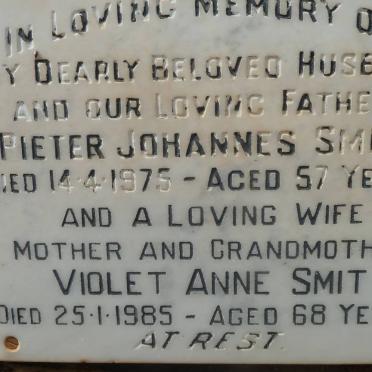 IN LOVING MEMORY O
Y DEARLY BELOVED HUSB
AND OUR LOVING FATHE
PIETER JOHANNES SMI
IED 14·4·1975 - AGED 57 YE
AND A LOVING WIFE
MOTHER AND GRANDMOTH
VIOLET ANNE SMIT
DIED 25·1·1985 - AGED 68 YE
AT REST.